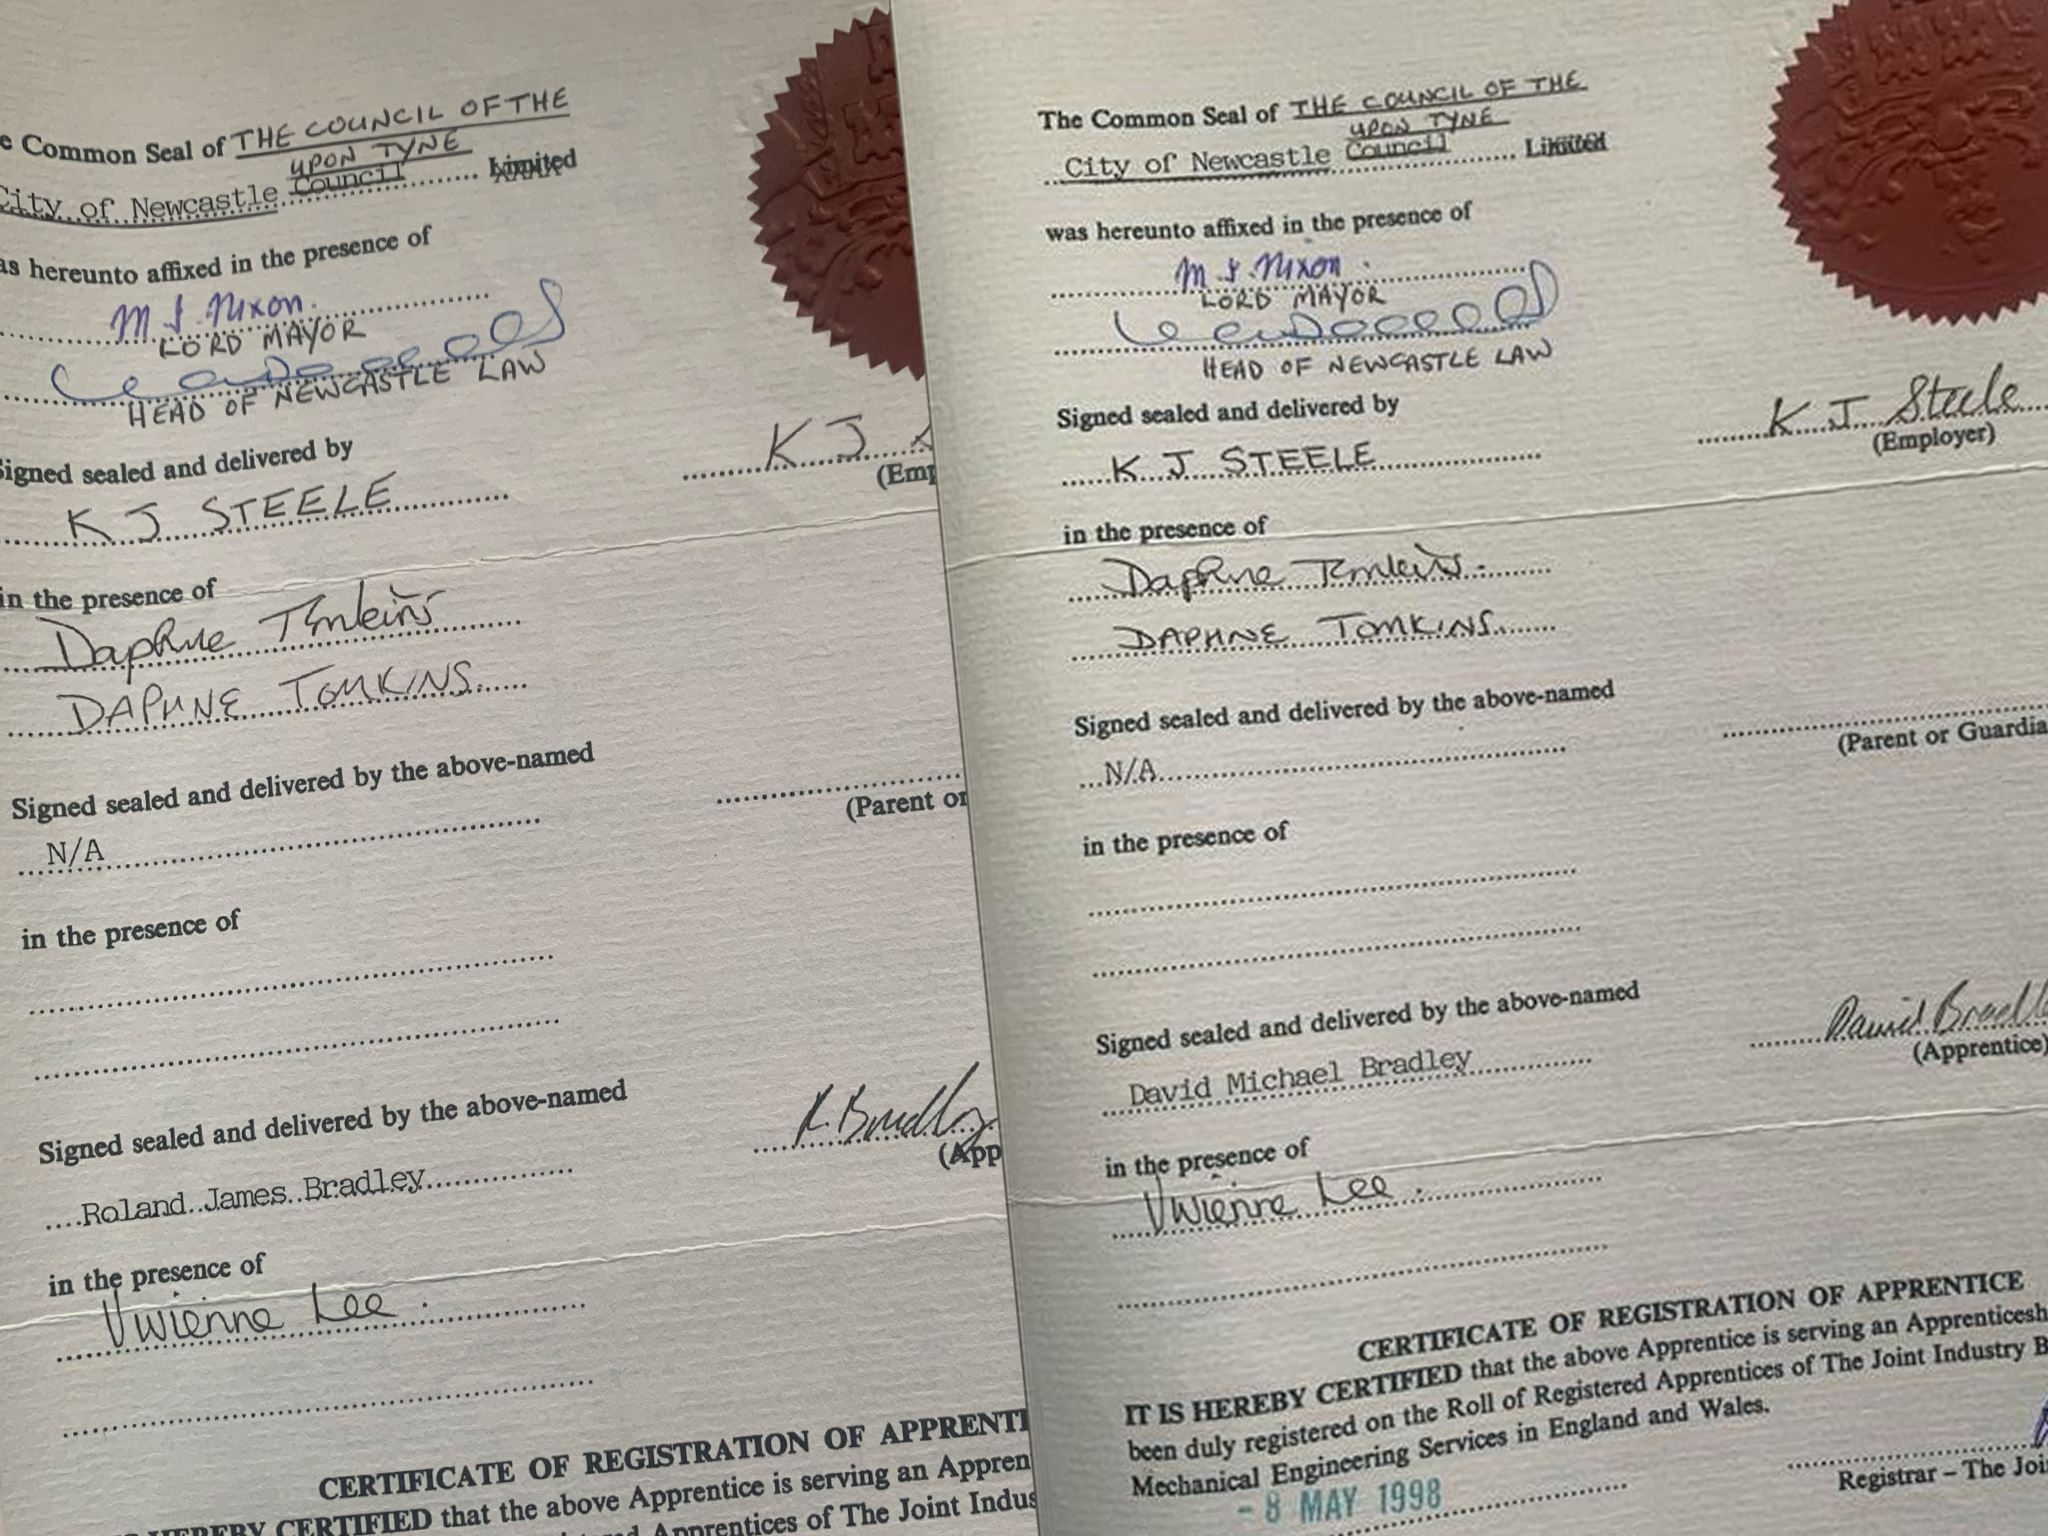 e Common Seal of THE COUNCIL OF THE
UPON TYNE
City of Newcastle Council Limited
as hereunto affixed in the presence of
M S Nixon.
LORD MAYOR
HEAD OF NEWCASTLE LAW
Signed sealed and delivered by
K J STEELE
K J
(Emp
in the presence of
Daphne Tomkins
DAPHNE TOMKINS.
Signed sealed and delivered by the above-named
N/A
(Parent or
in the presence of
Signed sealed and delivered by the above-named
R. Bradley
(App
Roland James Bradley
in the presence of
Vivienne Lee.
CERTIFICATE OF REGISTRATION OF APPRENTI
IS HEREBY CERTIFIED that the above Apprentice is serving an Appren
Apprentices of The Joint Indus
The Common Seal of THE COUNCIL OF THE
UPON TYNE
City of Newcastle Council Limited
was hereunto affixed in the presence of
M S. Nixon.
LORD MAYOR
HEAD OF NEWCASTLE LAW
Signed sealed and delivered by
K J Steele
K J STEELE
(Employer)
in the presence of
Daphne Tomkins.
DAPHNE TOMKINS.
Signed sealed and delivered by the above-named
N/A
(Parent or Guardia
in the presence of
Signed sealed and delivered by the above-named
David Bradle
David Michael Bradley
(Apprentice)
in the presence of
Vivienne Lee.
CERTIFICATE OF REGISTRATION OF APPRENTICE
IT IS HEREBY CERTIFIED that the above Apprentice is serving an Apprenticesh
been duly registered on the Roll of Registered Apprentices of The Joint Industry B
Mechanical Engineering Services in England and Wales.
- 8 MAY 1998
Registrar – The Join